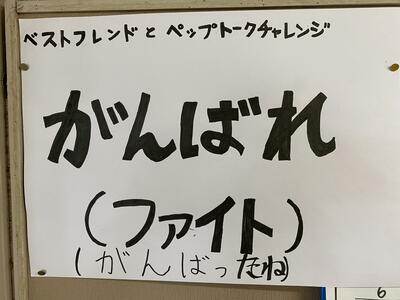 ベストフレンドと ペップトークチャレンジ
がんばれ
(ファイト)
(がんばったね)
6